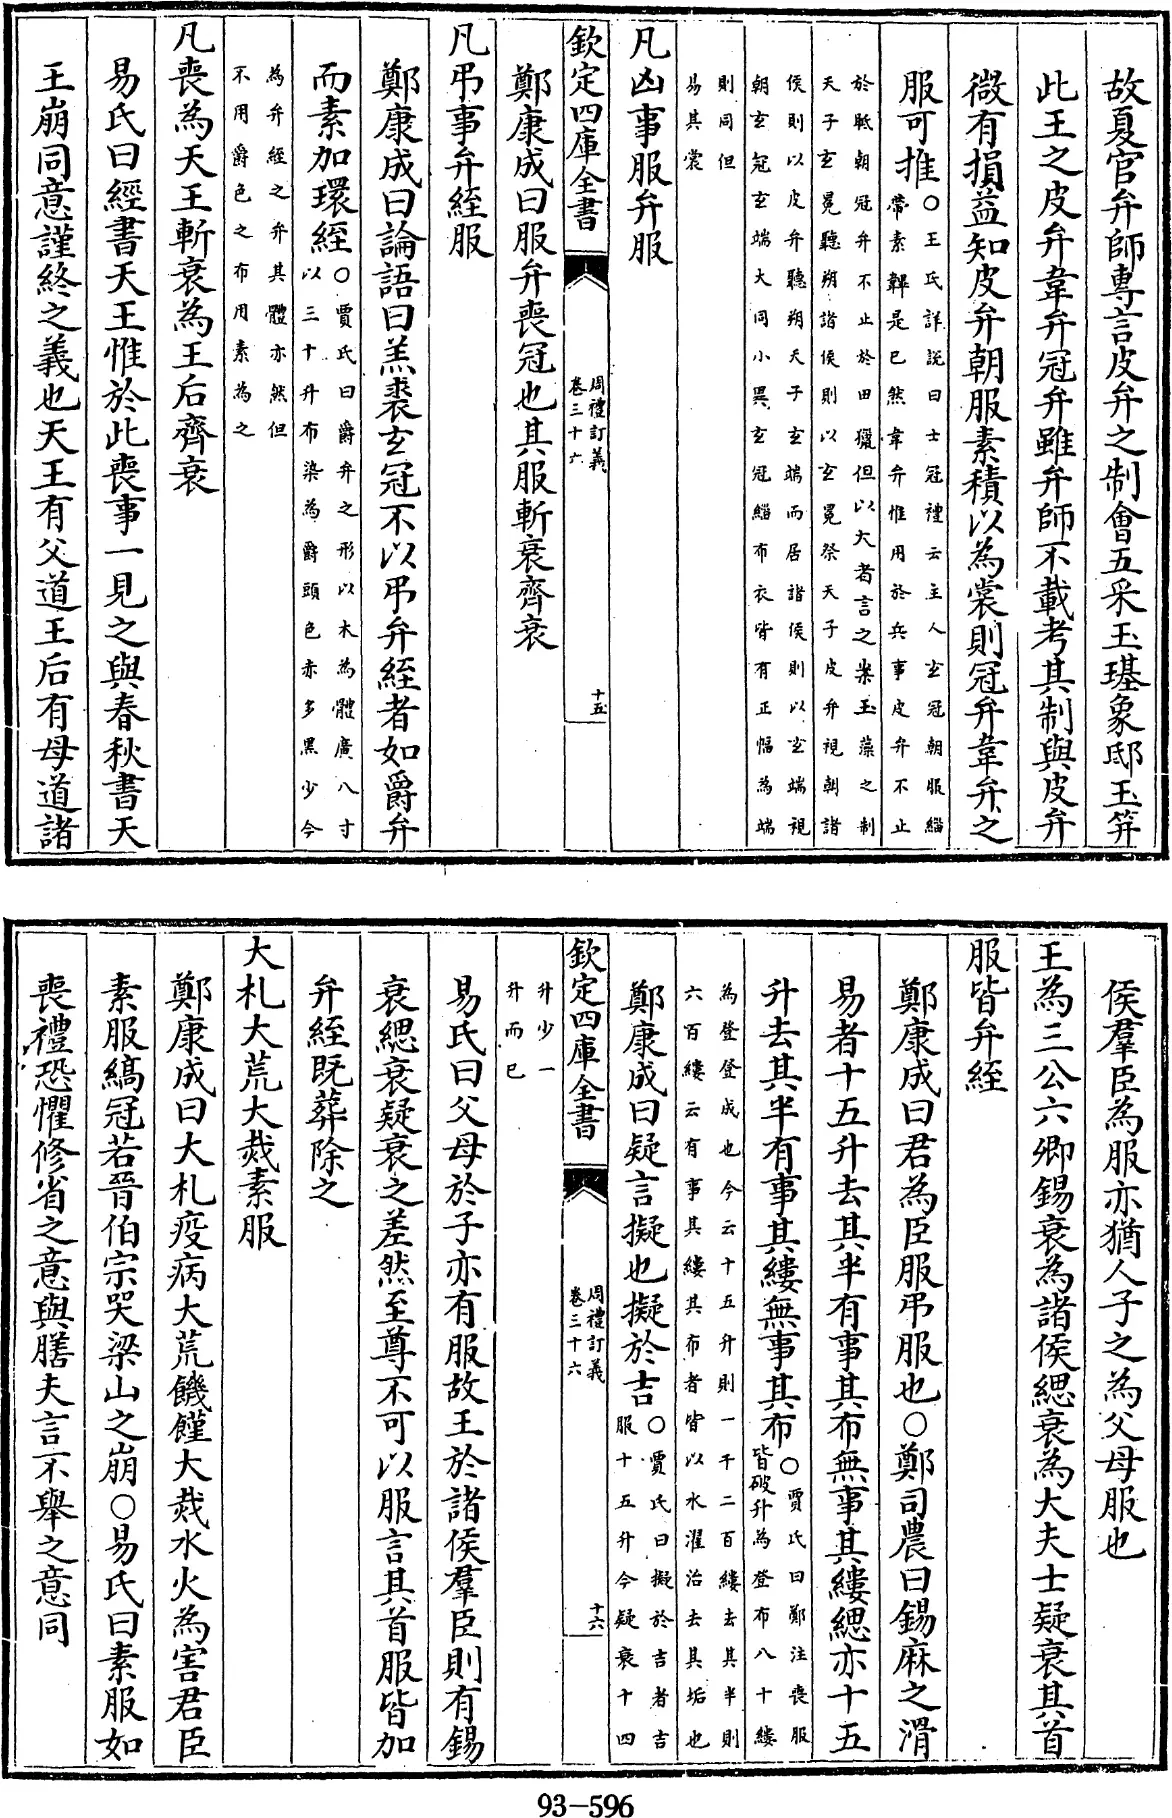 故夏官弁師專言皮弁之制會五采玉璂象邸玉笄
此王之皮弁韋弁冠弁雖弁師不載考其制與皮弁
微有損益知皮弁朝服素積以為裳則冠弁韋弁之
服可推○王氏詳說曰士冠禮云主人玄冠朝服緇
帶素韠是已然韋弁惟用於兵事皮弁不止
於眡朝冠弁不止於田獵但以大者言之案玉藻之制
天子玄冕聽朔諸侯則以玄冕祭天子皮弁視朝諸
侯則以皮弁聽朔天子玄端而居諸侯則以玄端視
朝玄冠玄端大同小異玄冠緇布衣皆有正幅為端
則同但
易其裳
凡凶事服弁服
欽定四庫全書
周禮訂義
卷三十六
十五
鄭康成曰服弁喪冠也其服斬衰齊衰
凡弔事弁絰服
鄭康成曰論語曰羔裘玄冠不以弔弁絰者如爵弁
而素加環絰○賈氏曰爵弁之形以木為體廣八寸
以三十升布染為爵頭色赤多黑少今
為弁絰之弁其體亦然但
不用爵色之布用素為之
凡喪為天王斬衰為王后齊衰
易氏曰經書天王惟於此喪事一見之與春秋書天
王崩同意謹終之義也天王有父道王后有母道諸
侯羣臣為服亦猶人子之為父母服也
王為三公六卿錫衰為諸侯緦衰為大夫士疑衰其首
服皆弁絰
鄭康成曰君為臣服弔服也○鄭司農曰錫麻之滑
易者十五升去其半有事其布無事其縷緦亦十五
升去其半有事其縷無事其布○賈氏曰鄭注喪服
皆破升為登布八十縷
為登登成也今云十五升則一千二百縷去其半則
六百縷云有事其縷其布者皆以水濯治去其垢也
鄭康成曰疑言擬也擬於吉○賈氏曰擬於吉者吉
服十五升今疑衰十四
欽定四庫全書
周禮訂義
卷三十六
十六
升少一
升而已
易氏曰父母於子亦有服故王於諸侯羣臣則有錫
衰緦衰疑衰之差然至尊不可以服言其首服皆加
弁絰既葬除之
大札大荒大烖素服
鄭康成曰大札疫病大荒饑饉大烖水火為害君臣
素服縞冠若晉伯宗哭梁山之崩○易氏曰素服如
喪禮恐懼修省之意與膳夫言不舉之意同
93-596